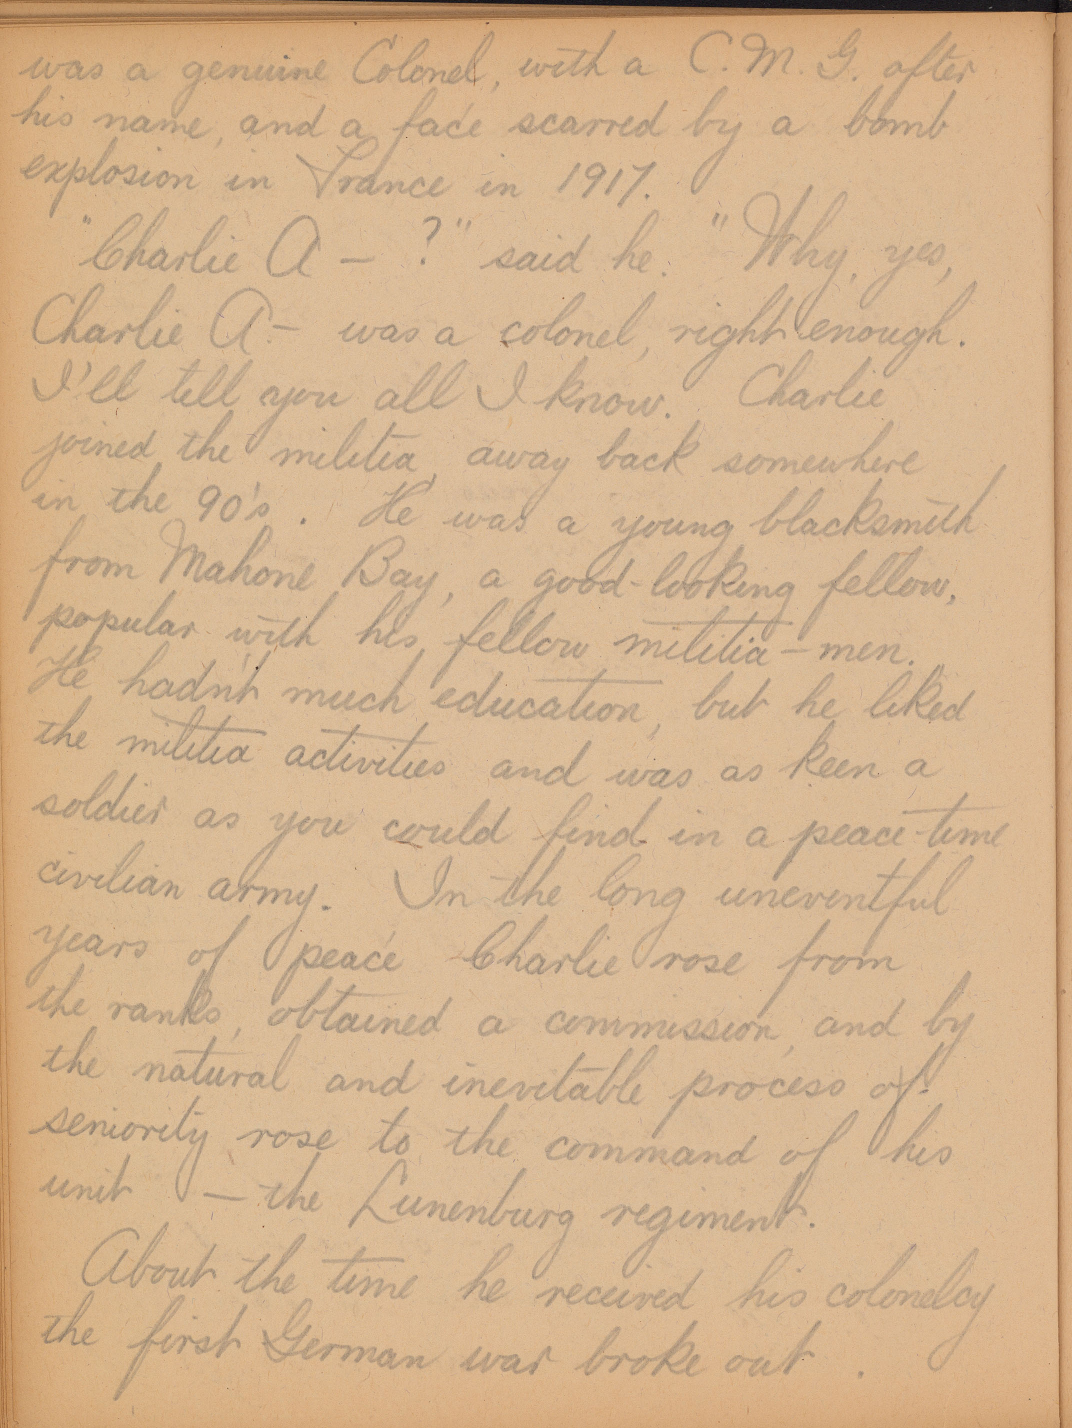 was a genuine Colonel, with a C.M.G. after
his name, and a face scarred by a bomb
explosion in France in 1917.
"Charlie A — ?" said he. "Why, yes,
Charlie A — was a colonel, right enough.
I'll tell you all I know. Charlie
joined the militia, away back somewhere
in the 90's. He was a young blacksmith
from Mahone Bay, a good-looking fellow,
popular with his fellow militia-men.
He hadn't much education, but he liked
the militia activities and was as keen a
soldier as you could find in a peace-time
civilian army. In the long uneventful
years of peace Charlie rose from
the ranks, obtained a commission, and by
the natural and inevitable process of
seniority rose to the command of his
unit — the Lunenburg regiment.
About the time he received his colonelcy
the first German war broke out.